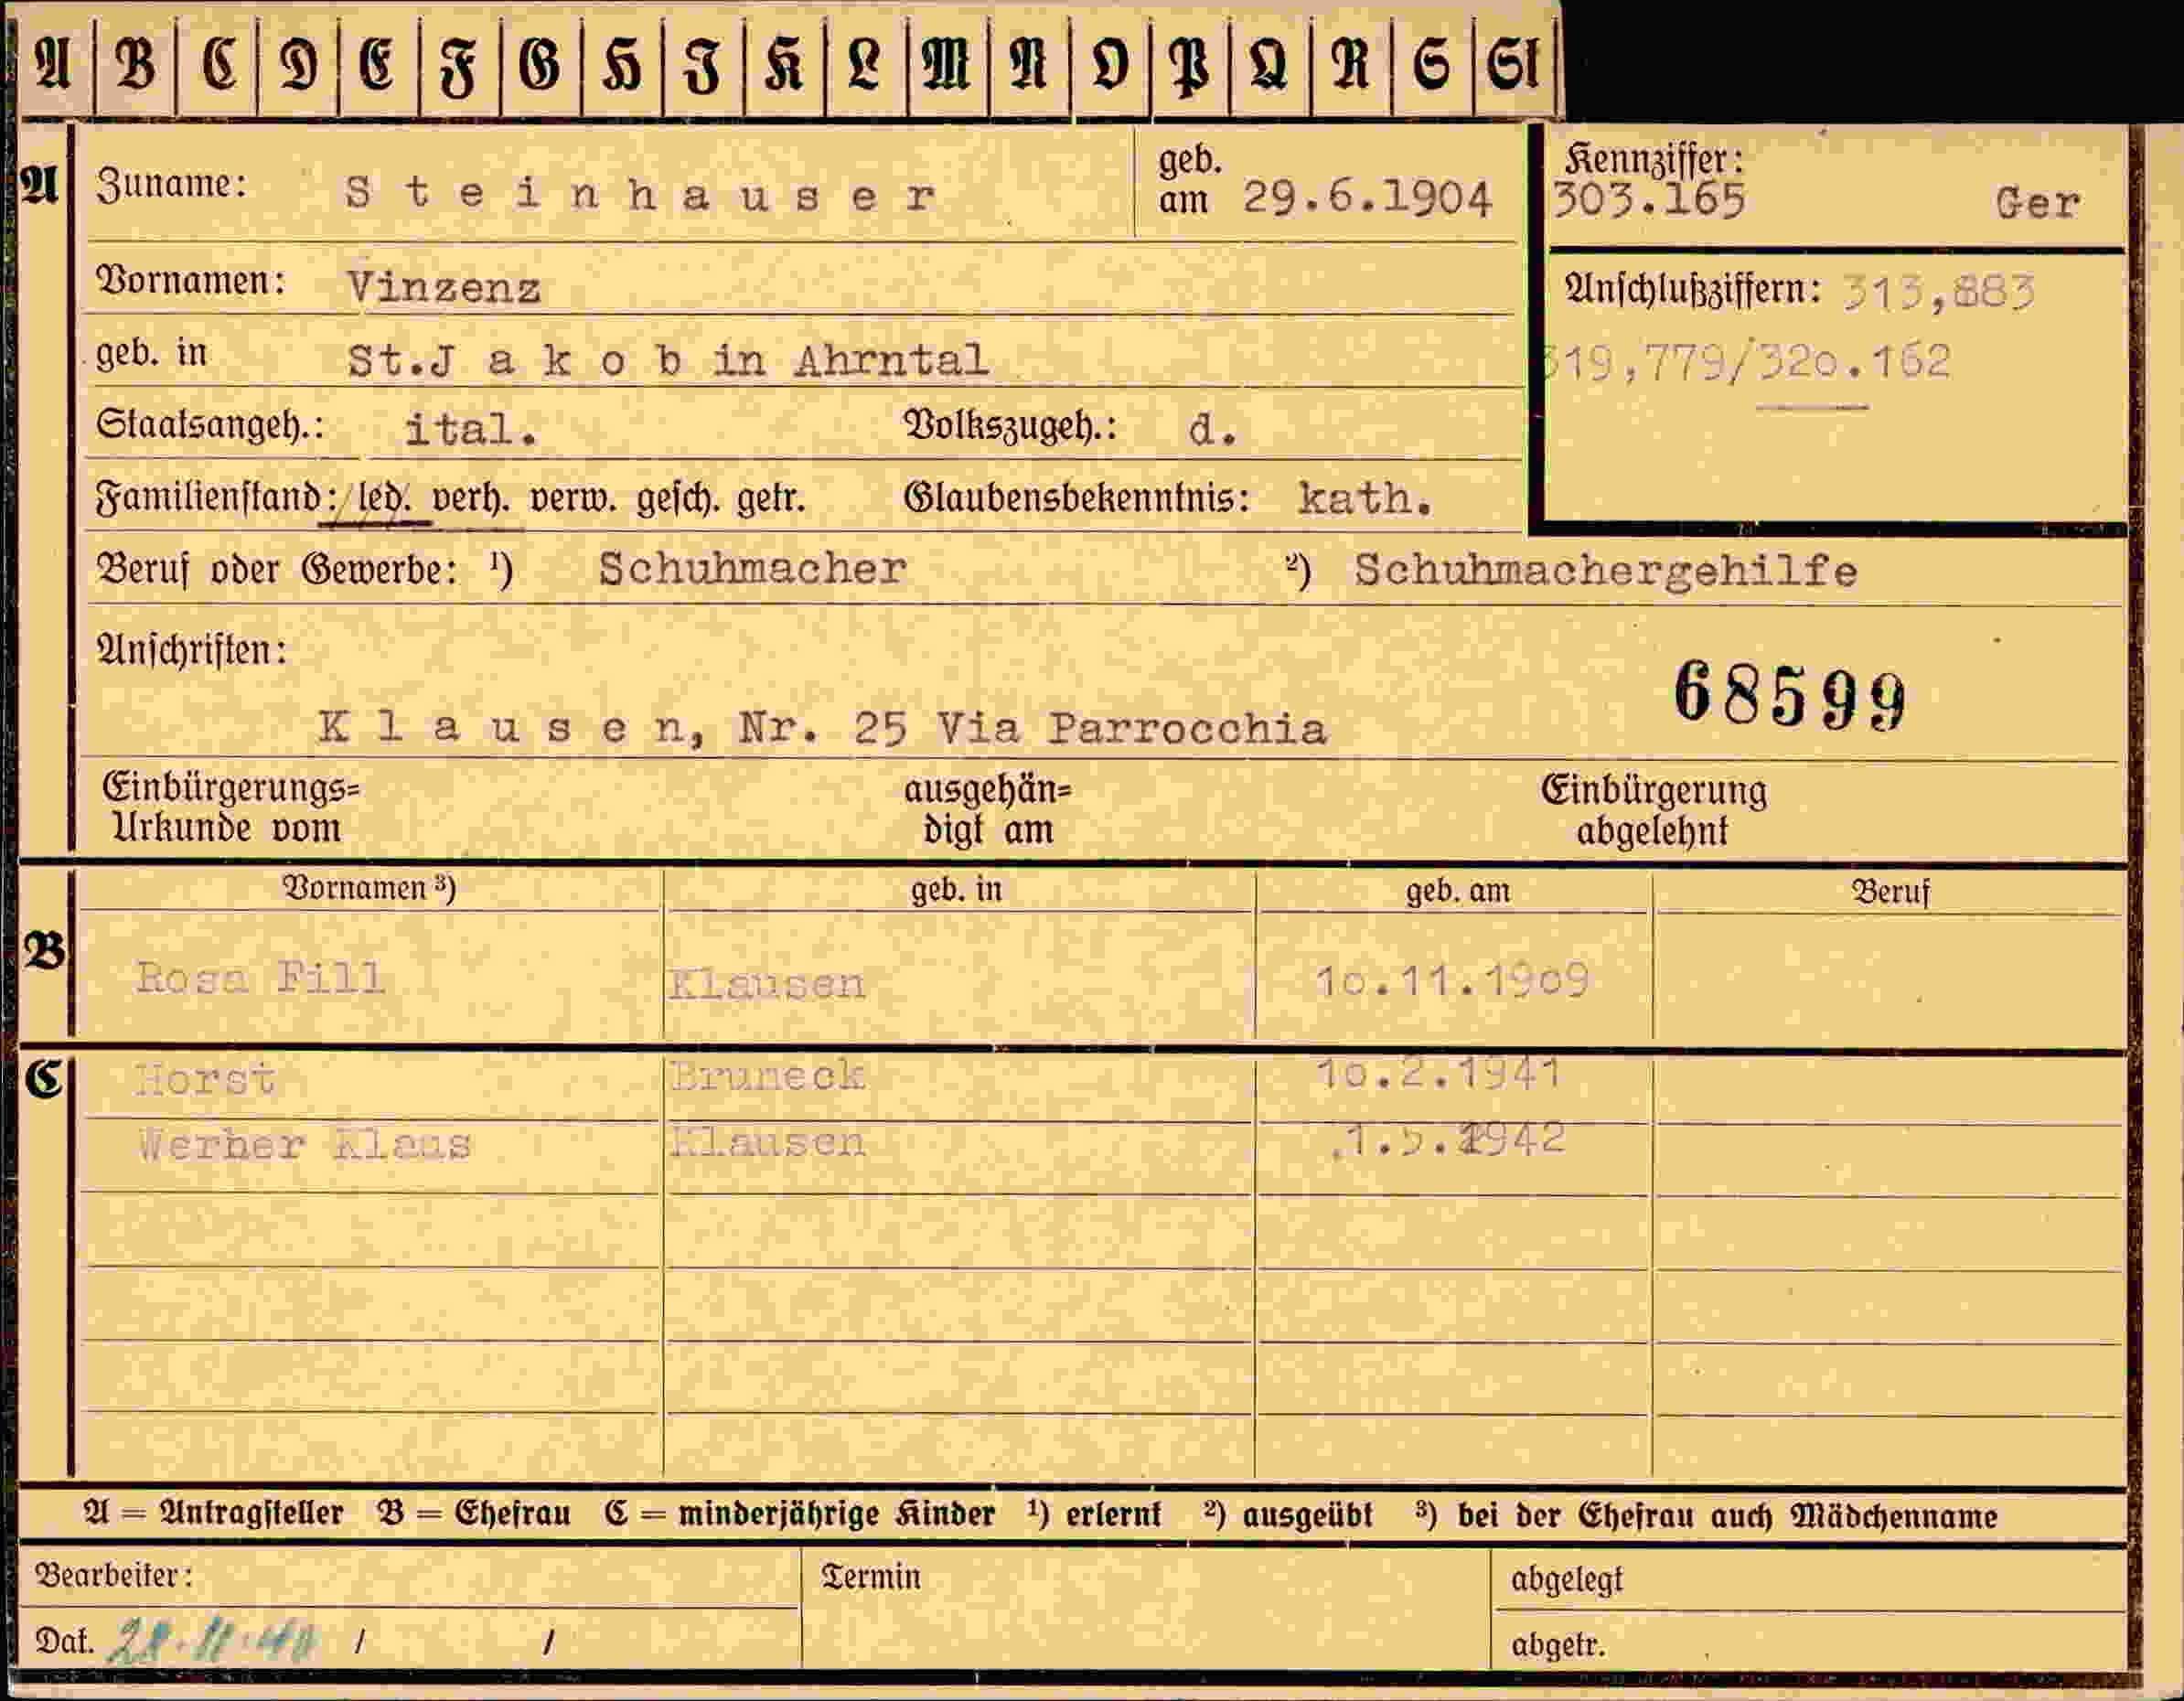 A B C D E F G H J K L M N O P Q R S St
A Zuname: S t e i n h a u s e r geb. am 29.6.1904 Kennziffer: 303.165 Ger
Vornamen: Vinzenz Anschlußziffern: 313,883
geb. in St.J a k o b in Ahrntal 319,779/320.162
Staatsangeh.: ital. Volkszugeh.: d.
Familienstand: led. verh. verw. gesch. getr. Glaubensbekenntnis: kath.
Beruf oder Gewerbe: ¹) Schuhmacher ²) Schuhmachergehilfe
Anschriften:
68599
K l a u s e n, Nr. 25 Via Parrocchia
Einbürgerungs= ausgehän= Einbürgerung
Urkunde vom digt am abgelehnt
Vornamen ³) geb. in geb. am Beruf
B Rosa Fill Klausen 10.11.1909
C Horst Bruneck 10.2.1941
Werner Klaus Klausen
A = Antragsteller B = Ehefrau C = minderjährige Kinder ¹) erlernt ²) ausgeübt ³) bei der Ehefrau auch Mädchenname
Bearbeiter: Termin abgelegt
Dat. 28.11.40 / / abgetr.